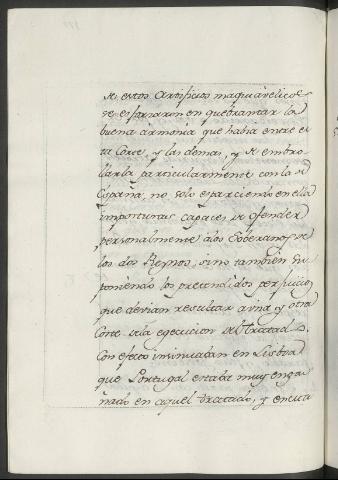 de estos Artificios maquiavelicos
se esforzaron en quebrantar la
buena armonia que habia entre es
ta Corte, y las demas, y de embro
llarla particularmente con la de
España, no solo esparciendo en ella
imposturas capaces de ofender
personalmente a los Soberanos de
los dos Reynos, sino tambien su
poniendo los pretendidos perjuicios
que devian resultar a una y otra
Corte de la egecucion del Tratado.
Con efecto insinuaban en Lisboa
que Portugal estaba muy enga
ñado en aquel Tratado, y en esta